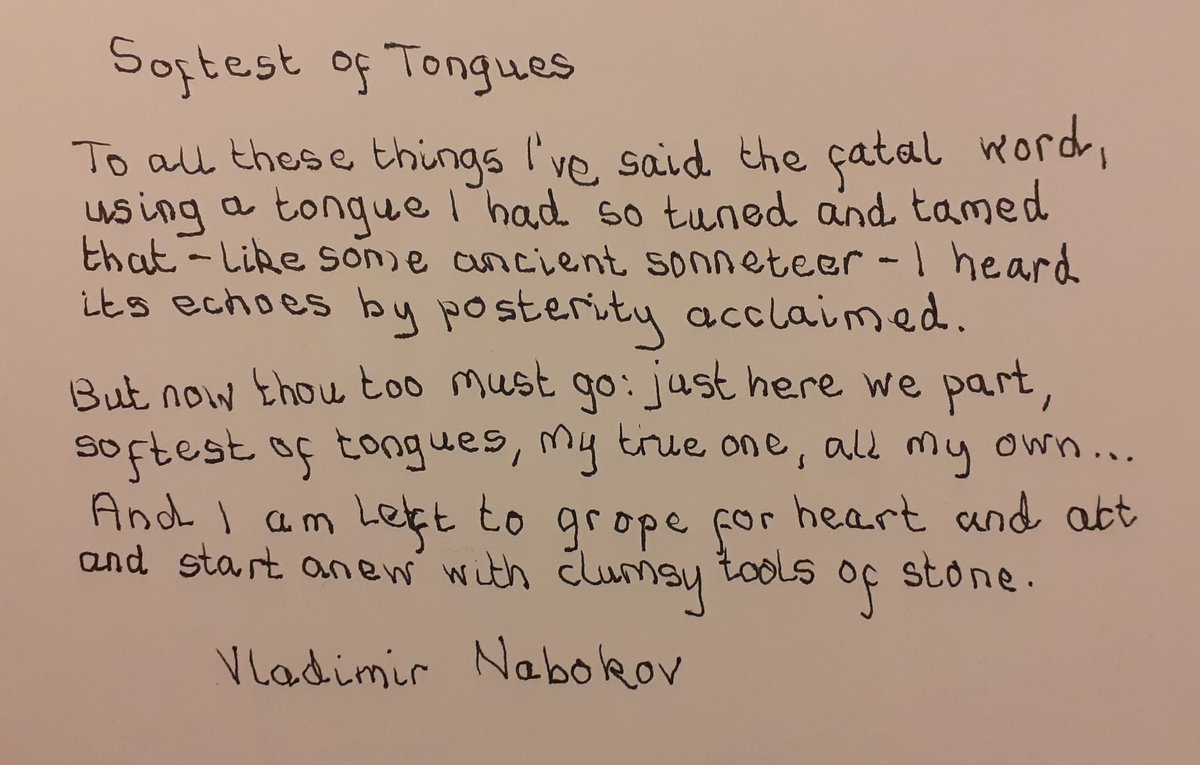 Softest of Tongues
To all these things I've said the fatal word,
using a tongue I had so tuned and tamed
that - like some ancient sonneteer - I heard
its echoes by posterity acclaimed.
But now thou too must go: just here we part,
softest of tongues, my true one, all my own...
And I am left to grope for heart and att
and start anew with clumsy tools of stone.
Vladimir Nabokov